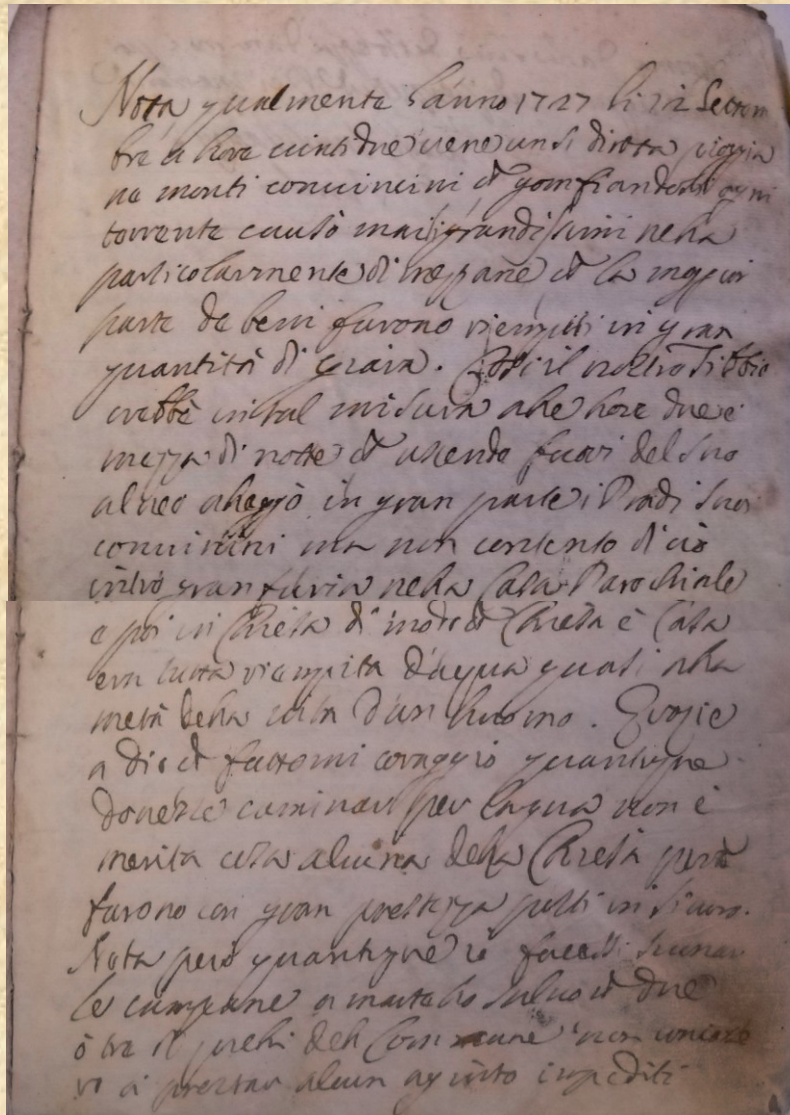 Nota qualmente l'anno 1727 li 12 Settem
bre a hore uinti due uene un si dirotta pioggia
ne monti conuincini et gonfiandosi ogni
torrente causò mali grandissimi nella
particolarmente di et la maggior
parte de beni furono riempitti in gran
quantità di giaira. il nostro
crebbe in tal misura alle hore due e
mezza di notte et uscendo fuori del suo
alueo allagò in gran parte i Pradi suoi
conuincini ma non contento di ciò
intrò gran furia nella Casa Parochiale
e poi in Chiesa di modo et Chiesa e Casa
era tutta riempita d'aqua quasi alla
metà della uita d'un huomo. Grazie
a Dio et fattomi coraggio quantunque
douesse caminar per l'aqua non è
perita cosa alcuna della Chiesa perchè
furono con gran prestezza posti in sicuro.
Nota però quantunque io facessi suonar
le campane a martello saluo et due
ò tre di quelli del Commune non
ro a prestar alcun agiuto impediti